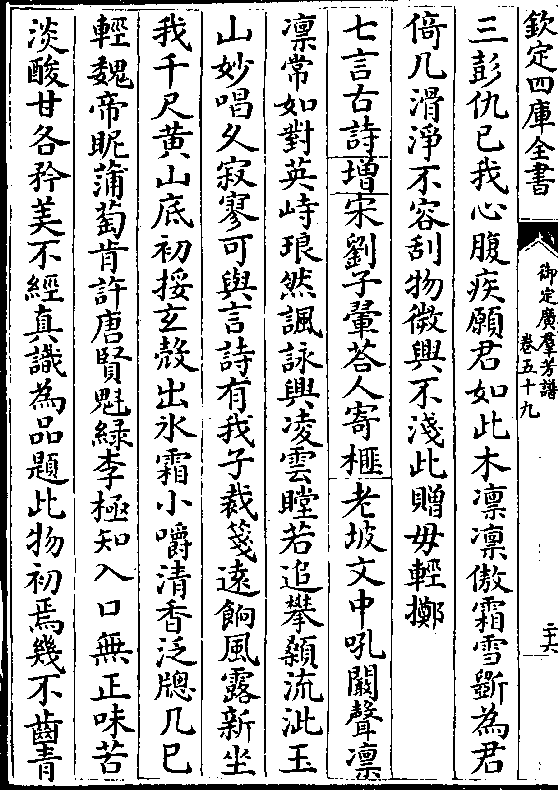 欽定四庫全書
御定廣羣芳譜
卷五十九
二六
三彭仇已我心腹疾願君如此木凛凛傲霜雪斵為君
倚几滑淨不容刮物微興不淺此贈毋輕擲
七言古詩增宋劉子翬荅人寄榧老坡文中吼闞聲凛
凛常如對英峙琅然諷詠興凌雲瞠若追攀顙流泚玉
山妙唱乆寂寥可與言詩有我子裁箋逺餉風露新坐
我千尺黄山底初挼玄殼出氷霜小嚼清香泛牕几已
輕魏帝眤蒲萄肯許唐賢魁緑李極知入口無正味苦
淡酸甘各矜美不經真識為品題此物初焉幾不齒青